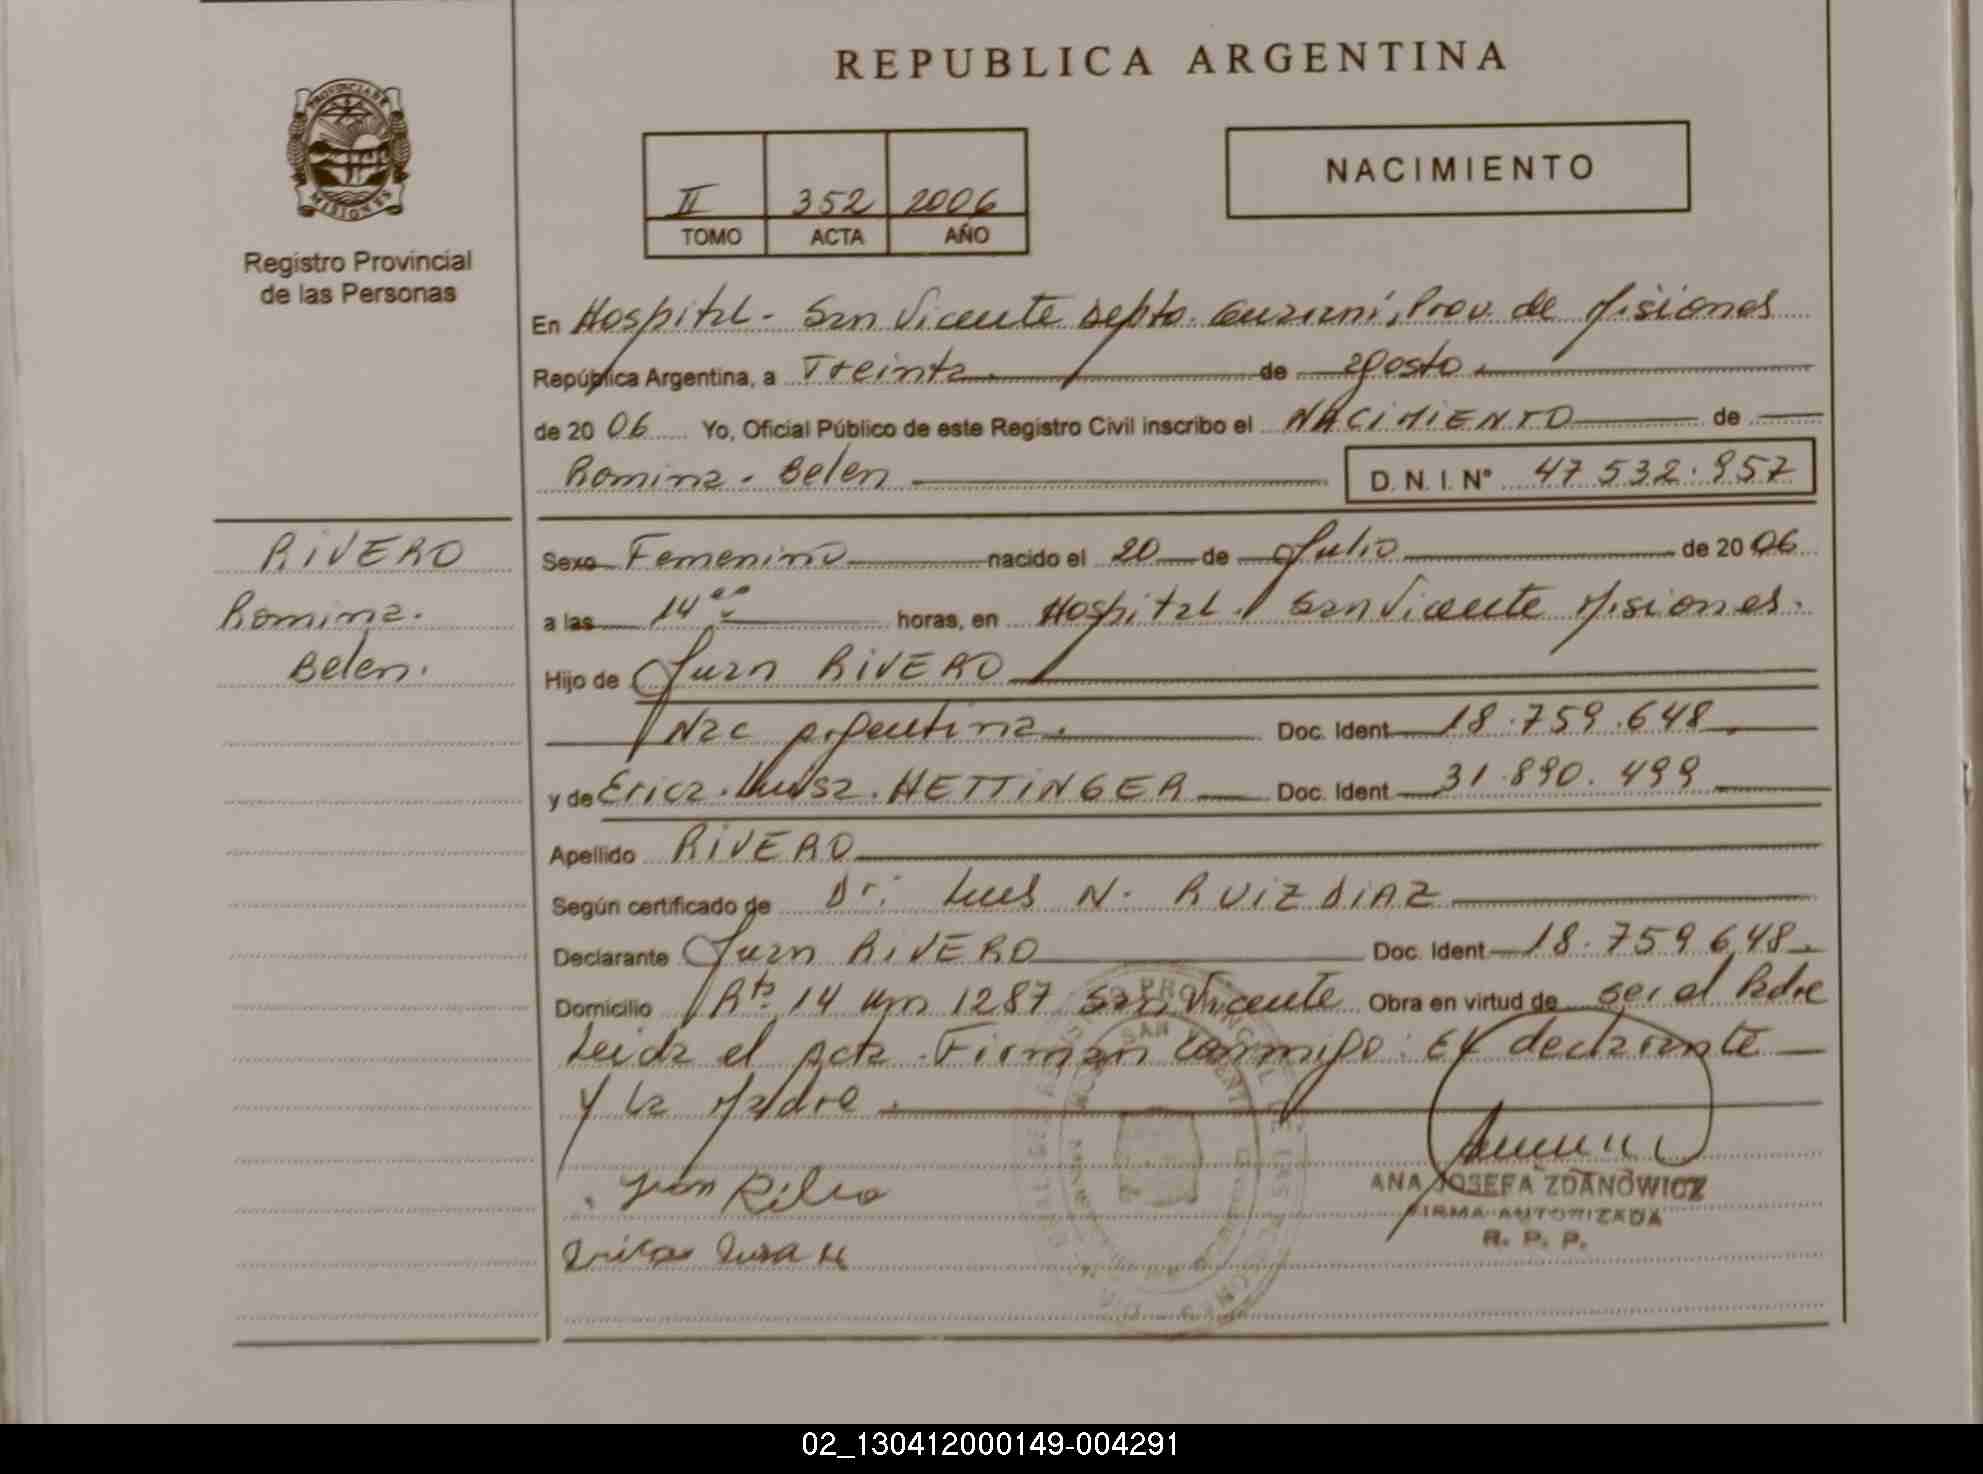 REPUBLICA ARGENTINA
PROVINCIA DE
MISIONES
Registro Provincial
de las Personas
II 352 2006
TOMO ACTA AÑO
NACIMIENTO
En Hospital - San Vicente Depto. Guaraní, Prov. de Misiones
República Argentina, a Treinta de agosto
de 2006 Yo, Oficial Público de este Registro Civil inscribo el NACIMIENTO de
Romina - Belen D. N. I. Nº 47.532.957
RIVERO
Romina.
Belen.
Sexo Femenino nacido el 20 de Julio de 2006
a las 14 horas, en Hospital. San Vicente Misiones.
Hijo de Juan RIVERO
Nac Argentina. Doc. Ident 18.759.648
y de Erica. Luisa. HETTINGER Doc. Ident 31.890.499
Apellido RIVERO
Según certificado de Dr: Luis N. RUIZ DIAZ
Declarante Juan RIVERO Doc. Ident 18.759.648.
Domicilio Rta 14 Km 1287 San Vicente Obra en virtud de ser el Padre
Leida el Acta. Firman conmigo: El declarante
y la Madre.
ANA JOSEFA ZDANOWICZ
FIRMA AUTORIZADA
R. P. P.
02_130412000149-004291